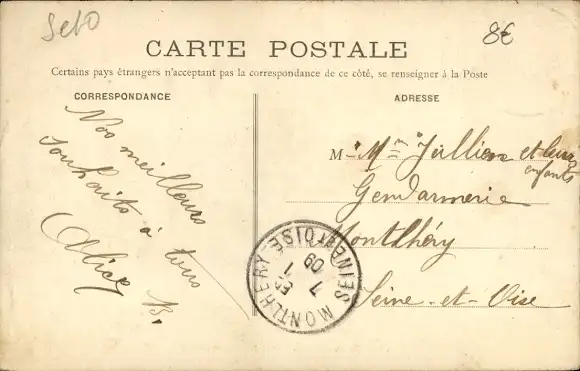 SetO
8€
CARTE POSTALE
Certains pays étrangers n'acceptant pas la correspondance de ce côté, se renseigner à la Poste
CORRESPONDANCE
Nos meilleurs
souhaits à tous
Alice B.
ADRESSE
M "Mr" Jullien et leurs
enfants
Gendarmerie
Montlhéry
Seine-et-Oise
MONTLHERY
SEINE ET OISE
7
1
09